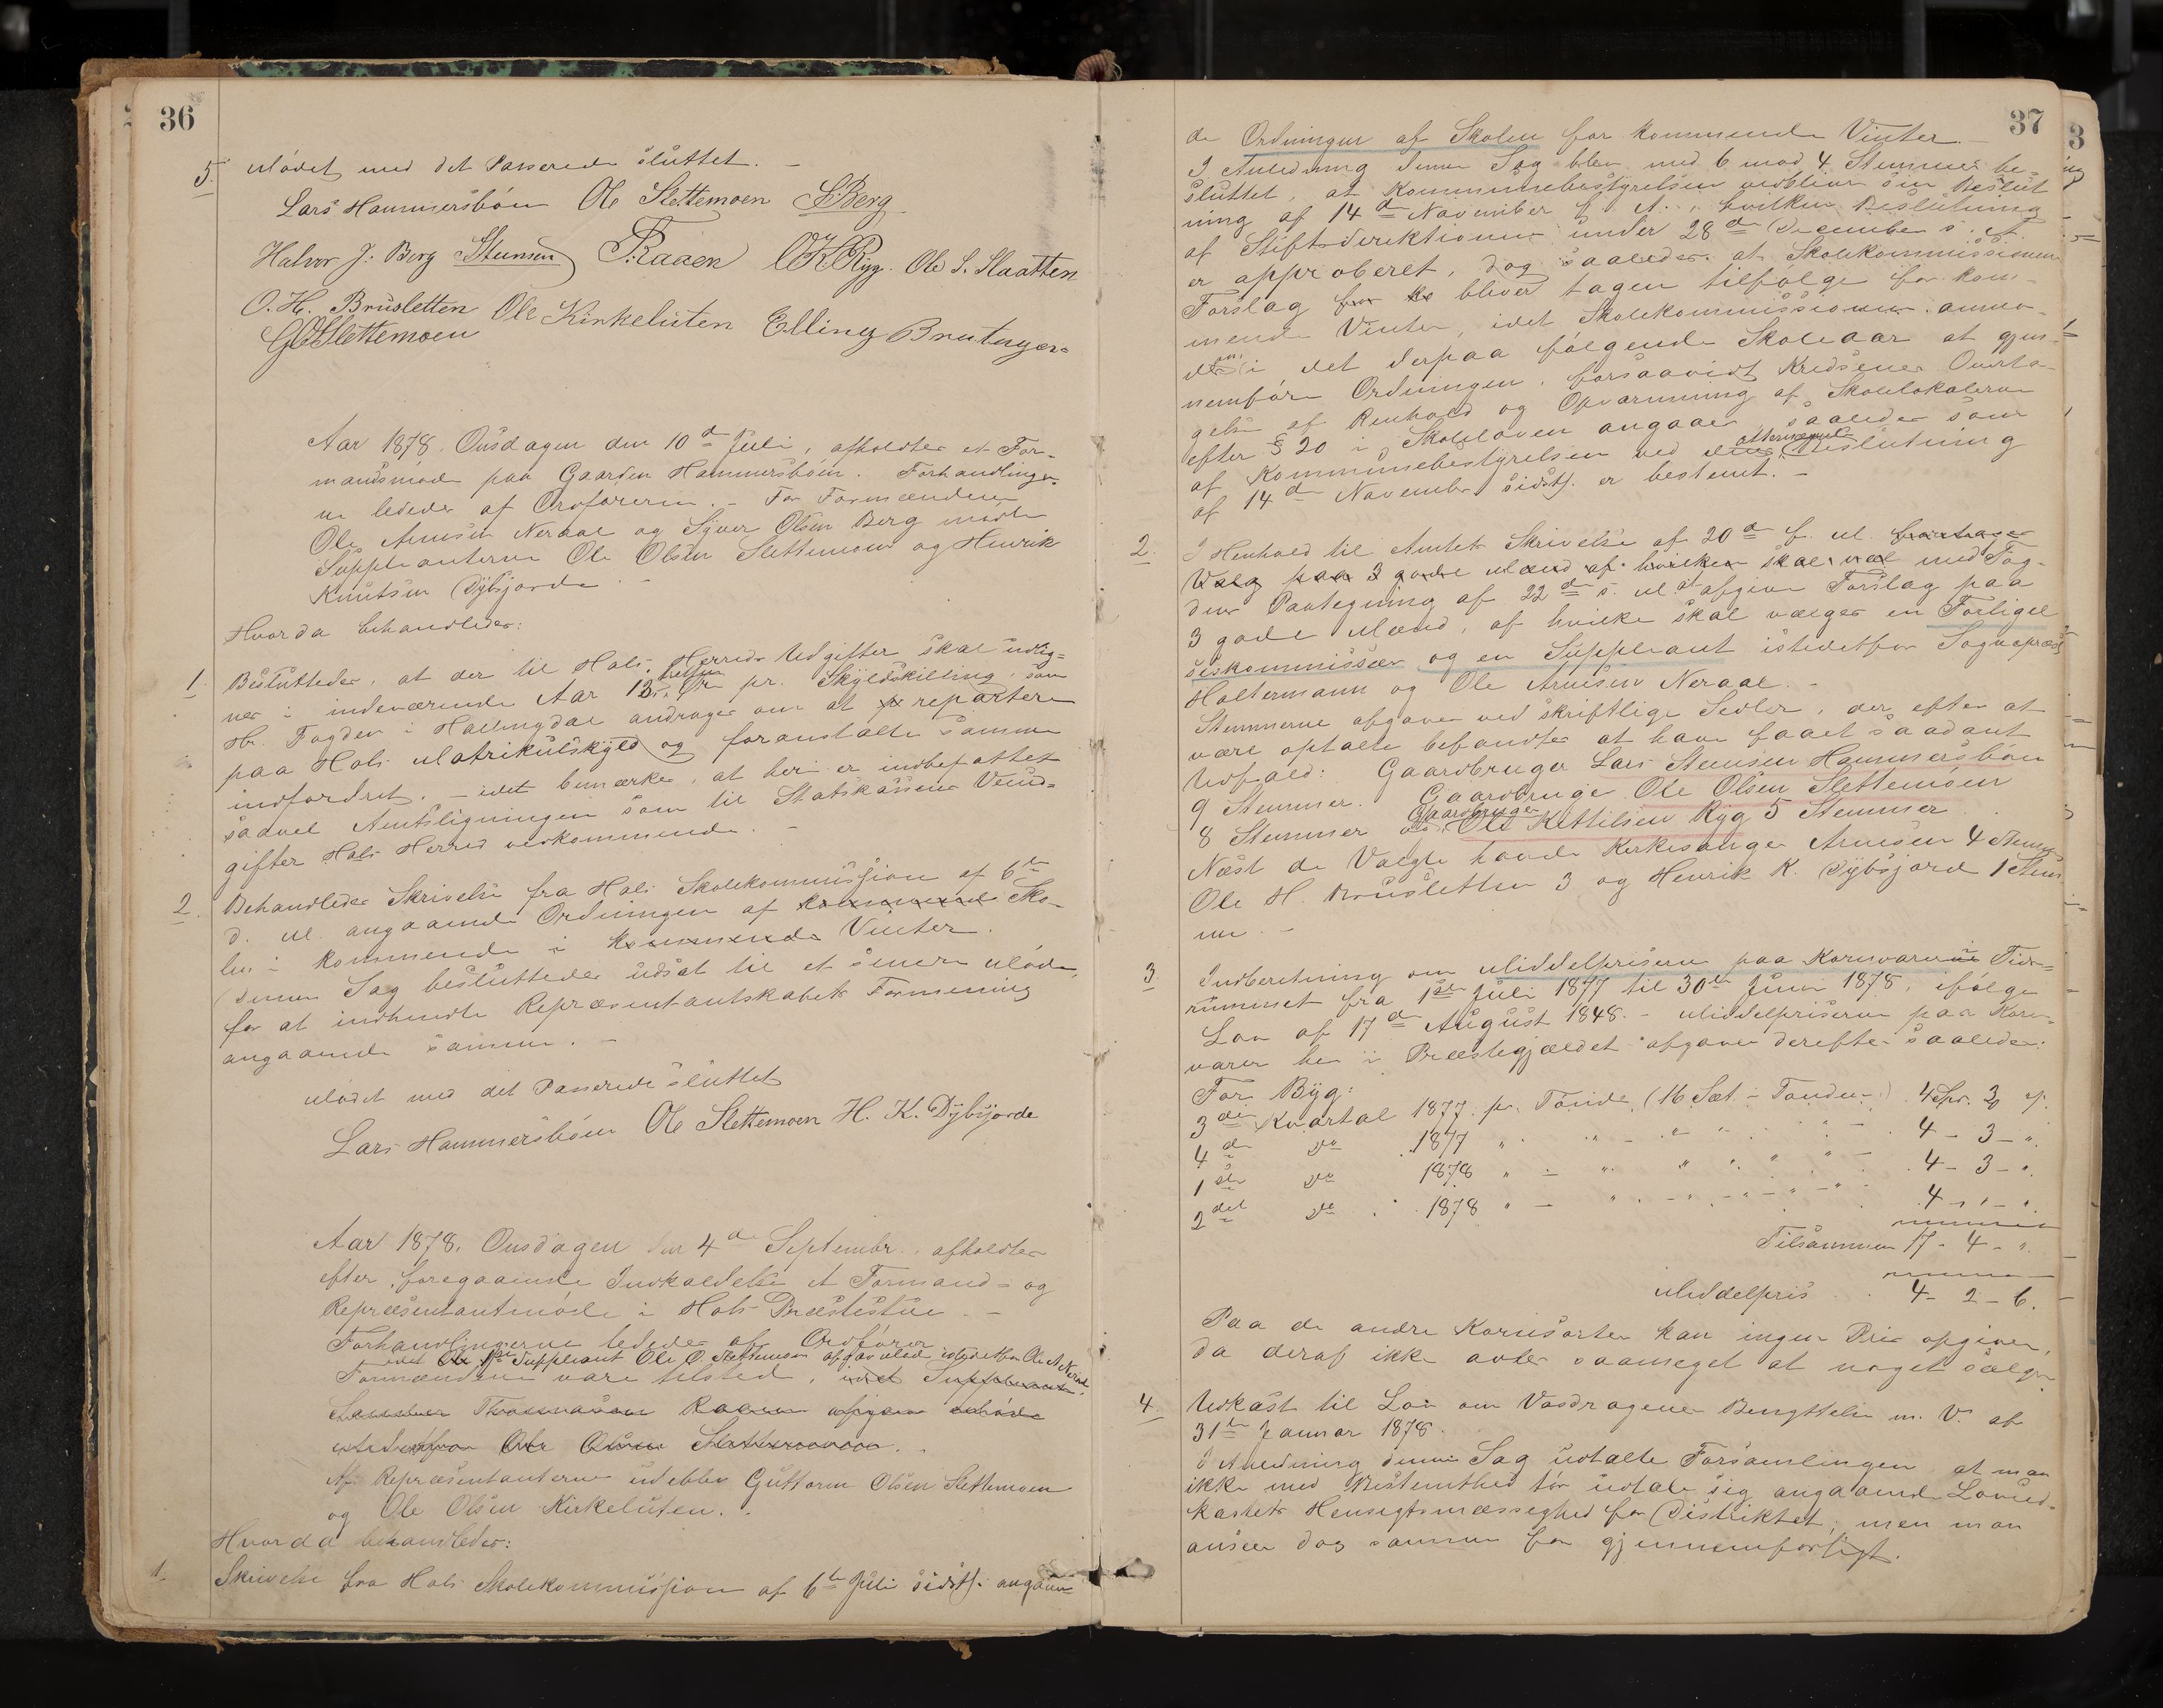 36
5. Mødet med det Passerede sluttet. –
Lars Hammersbøen Ole Slettemoen S. Berg
Halvor J. Berg Steensen T. Raaen O K Ryg. Ole S. Slaatten
O. H. Brusletten Ole Kirkeluten Elling Brutuger
G O Slettemoen
Aar 1878. Onsdagen den 10de Juli, afholdtes et For-
mandsmøde paa Gaarden Hammersbøen. Forhandlinger-
ne lededes af Ordføreren. – For Formændene
Ole Arnesen Neraal og Syver Olsen Berg mødte
Suppleanterne Ole Olsen Slettemoen og Henrik
Knutsen Dybsjorde. –
Hvorda behandledes:
1. Besluttedes, at der til Hols Herreds Udgifter skal udlig-
nes i indeværende Aar 12 tolv Øre pr. Skyldskilling, som
Hr. Fogden i Hallingdal andrages om at repartere
paa Hols Matrikulskyld og foranstalte samme
indfordret. – idet bemærkes, at heri er indbefattet
saavel Amtsligningen som til Statskassens Veiud-
gifter Hols Herred vedkommende. –
2. Behandledes Skrivelse fra Hols Skolekommission af 6te
d. M. angaaende Ordningen af kommende Sko-
len i kommende i kommende Vinter.
Denne Sag besluttedes udsat til et senere Møde,
for at indhente Repræsentantskabets Formening
angaaende samme. –
Mødet med det Passerede sluttet
Lars Hammersbøen Ole Slettemoen H. K. Dybsjorde
Aar 1878. Onsdagen den 4de Septembr. afholdtes
efter foregaaende Indkaldelse et Formands- og
Repræsentantmøde i Hols Præstestue. –
Forhandlingerne lededes af Ordfører
idet 1ste Suppleant Ole O. Slettemoen afgav Møde istedetfor Ole A. Neraal.
Formændene vare tilstede, idet Suppleant
Thomasen Raaen afgav Møde
istedetfor Ole Olsen Slettemoen.
Af Repræsentanterne udeblev Guttorm Olsen Slettemoen
og Ole Olsen Kirkeluten.
Hvorda behandledes:
1. Skrivelse fra Hols Skolekommission af 6te Juli sidstl. angaaen-
37
de Ordningen af Skolen for kommende Vinter. –
I Anledning denne Sag blev med 6 mod 4 Stemmer be-
sluttet, at Kommunebestyrelsen vedbliver sin Beslut
ning af 14de November f. A., hvilken Beslutning
af Stiftsdirektionen under 28de December s. A.
er approberet, dog saaledes at Skolekommissionens
Forslag bliver tagen tilfølge for kom-
mende Vinter, idet Skolekommissionen anmo-
des om i det derpaa følgende Skoleaar at gjen-
nemføre Ordningen, forsaavidt Kredsenes Overta-
gelse af Renhold og Opvarmning af Skolelokalerne
efter § 20 i Skoleloven angaaer saaledes som
af Kommunebestyrelsen ved ovennævnte Beslutning
af 14de November sidstl. er bestemt. –
2. I Henhold til Amtets Skrivelse af 20de f. M. foretages
Valg paa 3 gode Mænd af hvilken skal væl med Fog-
dens Paategning af 22de s. M. at afgive Forslag paa
3 gode Mænd, af hvilke skal vælges en Forligel
seskommissær og en Suppleant istedetfor Sognepræst
Holtermann og Ole Arnesen Neraal. –
Stemmerne afgaves ved skriftlige Sedler, der efter at
være optalte befandtes at have faaet saadant
Udfald: Gaardbruger Lars Steensen Hammersbøen
9 Stemmer. Gaardbruger Ole Olsen Slettemoen
8 Stemmer og Gaardbruger Ole Kittilsen Ryg 5 Stemmer
Næst de Valgte havde Kirkesanger Arnesen 4 Stemmer
Ole H. Brusletten 3 og Henrik K. Dybsjord 1 Stem
me. –
3. Indberetning om Middelpriserne paa Kornvarer i Tids-
rummet fra 1ste Juli 1877 til 30te Juni 1878, ifølge
Lov af 17de August 1848. – Middelpriserne paa Korn-
varer her i Præstegjældet afgaves derefter saaledes:
For Byg:
3die Kvartal 1877. pr. Tønde (16 Sæt. i Tønden) 4 Spd. 3 „
4de do 1877 „ „ „ 4 – 3 – „
1ste do 1878 „ „ „ 4 – 3 – „
2det do 1878 „ „ „ 4 – „ – „
Tilsammen 17 – 4 – „
Middelpris 4 – 2 – 6.
Paa de andre Kornsorter kan ingen Pris opgives,
da deraf ikke avles saameget at noget sælges
4. Udkast til Lov om Vasdragenes Benyttelse m. V. af
31te Januar 1878.
I Anledning denne Sag udtalte Forsamlingen at man
ikke med Bestemthed tør udtale sig angaaende Lovud-
kastets Hensigtsmæssighed for Distriktet, men man
anseer dog samme for gjennemførligt.